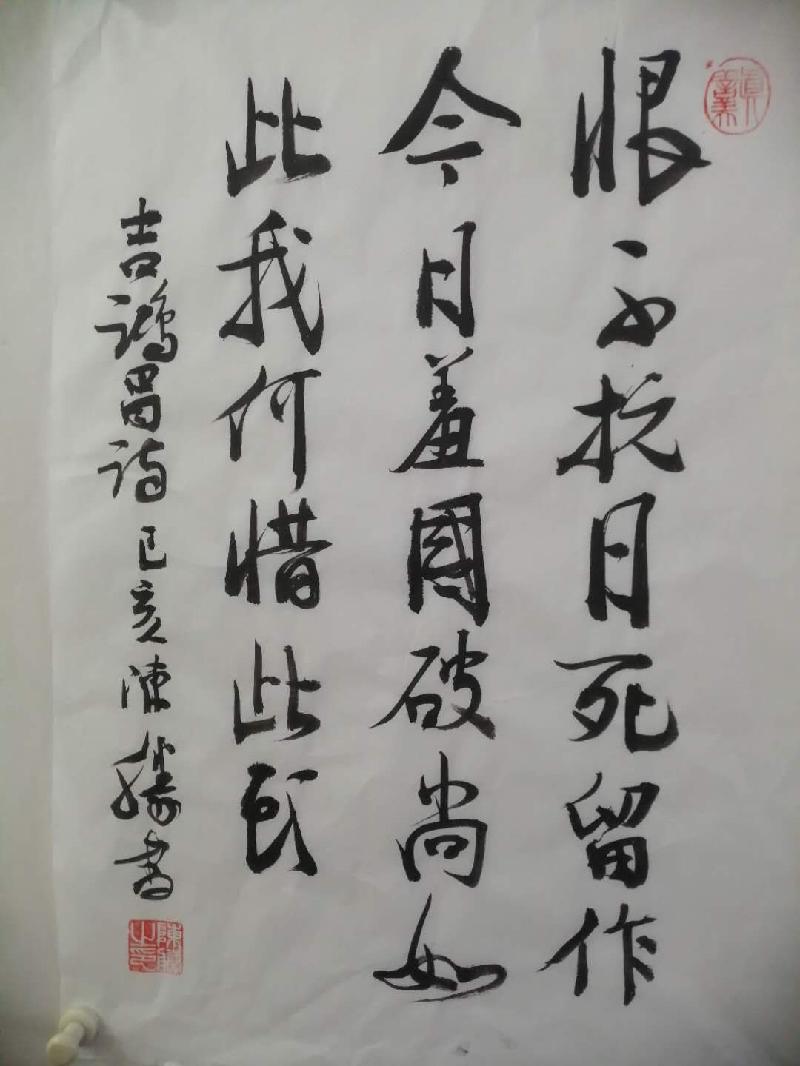 恨不抗日死留作
今日羞國破尚如
此我何惜此頭
吉鴻昌詩己亥陳勝書